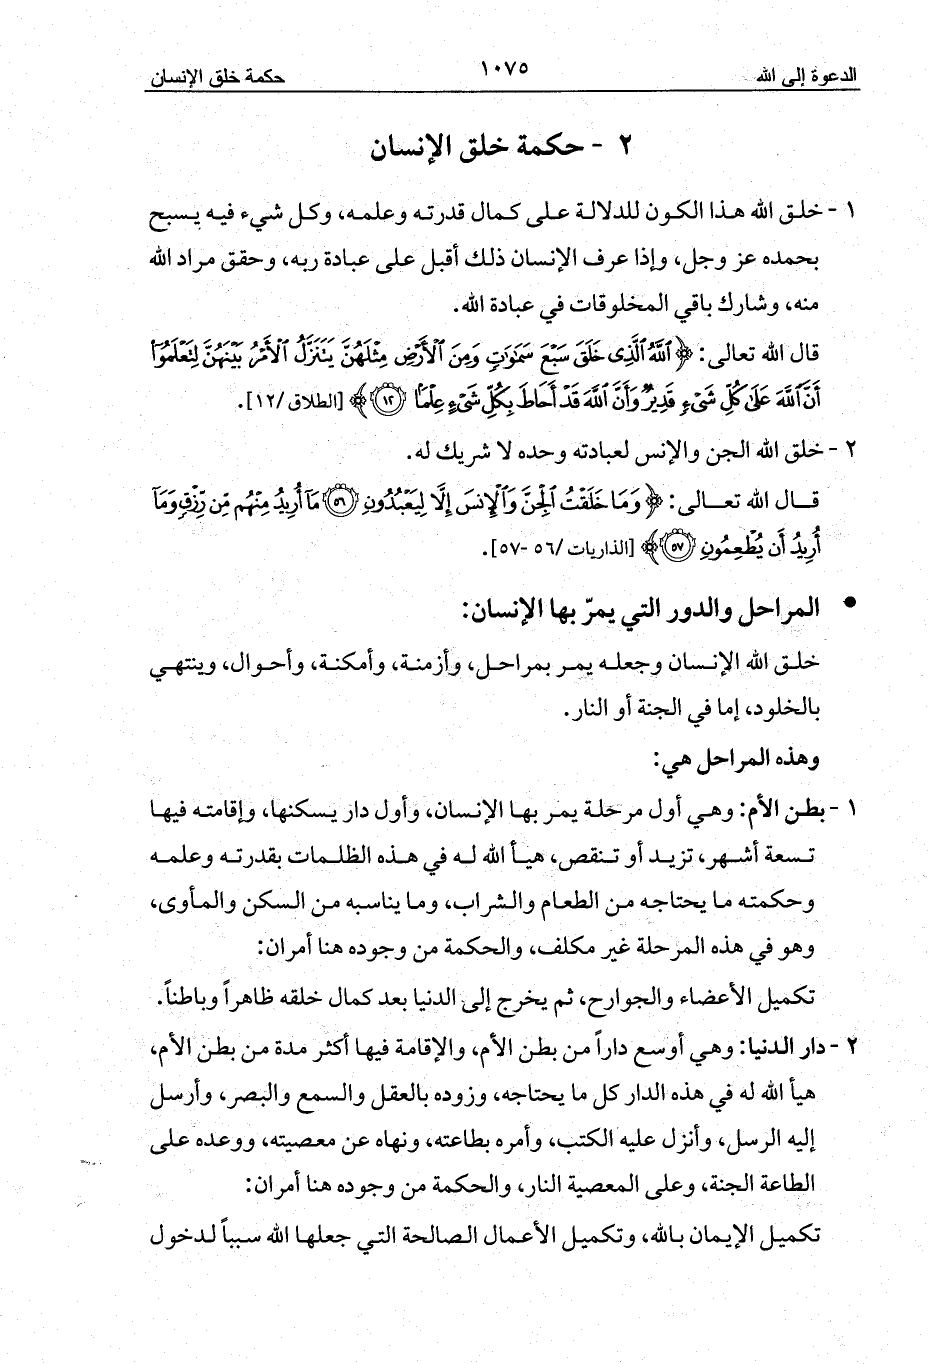 الدعوة إلى الله
١٠٧٥
حكمة خلق الإنسان
٢ - حكمة خلق الإنسان
١ - خلق الله هذا الكون للدلالة على كمال قدرته وعلمه، وكل شيء فيه يسبح
بحمده عز وجل، وإذا عرف الإنسان ذلك أقبل على عبادة ربه، وحقق مراد الله
منه، وشارك باقي المخلوقات في عبادة الله.
قال الله تعالى: ﴿ ٱللَّهُ ٱلَّذِى خَلَقَ سَبْعَ سَمَٰوَٰتٍ وَمِنَ ٱلْأَرْضِ مِثْلَهُنَّ يَتَنَزَّلُ ٱلْأَمْرُ بَيْنَهُنَّ لِتَعْلَمُوٓا۟
أَنَّ ٱللَّهَ عَلَىٰ كُلِّ شَىْءٍ قَدِيرٌ وَأَنَّ ٱللَّهَ قَدْ أَحَاطَ بِكُلِّ شَىْءٍ عِلْمًۢا ١٢ ﴾ [الطلاق/١٢].
٢ - خلق الله الجن والإنس لعبادته وحده لا شريك له.
قال الله تعالى: ﴿ وَمَا خَلَقْتُ ٱلْجِنَّ وَٱلْإِنسَ إِلَّا لِيَعْبُدُونِ ٥٦ مَآ أُرِيدُ مِنْهُم مِّن رِّزْقٍ وَمَآ
أُرِيدُ أَن يُطْعِمُونِ ٥٧ ﴾ [الذاريات/٥٦ -٥٧].
• المراحل والدور التي يمرّ بها الإنسان:
خلق الله الإنسان وجعله يمر بمراحل، وأزمنة، وأمكنة، وأحوال، وينتهي
بالخلود، إما في الجنة أو النار.
وهذه المراحل هي:
١ - بطن الأم: وهي أول مرحلة يمر بها الإنسان، وأول دار يسكنها، وإقامته فيها
تسعة أشهر، تزيد أو تنقص، هيأ الله له في هذه الظلمات بقدرته وعلمه
وحكمته ما يحتاجه من الطعام والشراب، وما يناسبه من السكن والمأوى،
وهو في هذه المرحلة غير مكلف، والحكمة من وجوده هنا أمران:
تكميل الأعضاء والجوارح، ثم يخرج إلى الدنيا بعد كمال خلقه ظاهراً وباطناً.
٢ - دار الدنيا: وهي أوسع داراً من بطن الأم، والإقامة فيها أكثر مدة من بطن الأم،
هيأ الله له في هذه الدار كل ما يحتاجه، وزوده بالعقل والسمع والبصر، وأرسل
إليه الرسل، وأنزل عليه الكتب، وأمره بطاعته، ونهاه عن معصيته، ووعده على
الطاعة الجنة، وعلى المعصية النار، والحكمة من وجوده هنا أمران:
تكميل الإيمان بالله، وتكميل الأعمال الصالحة التي جعلها الله سبباً لدخول